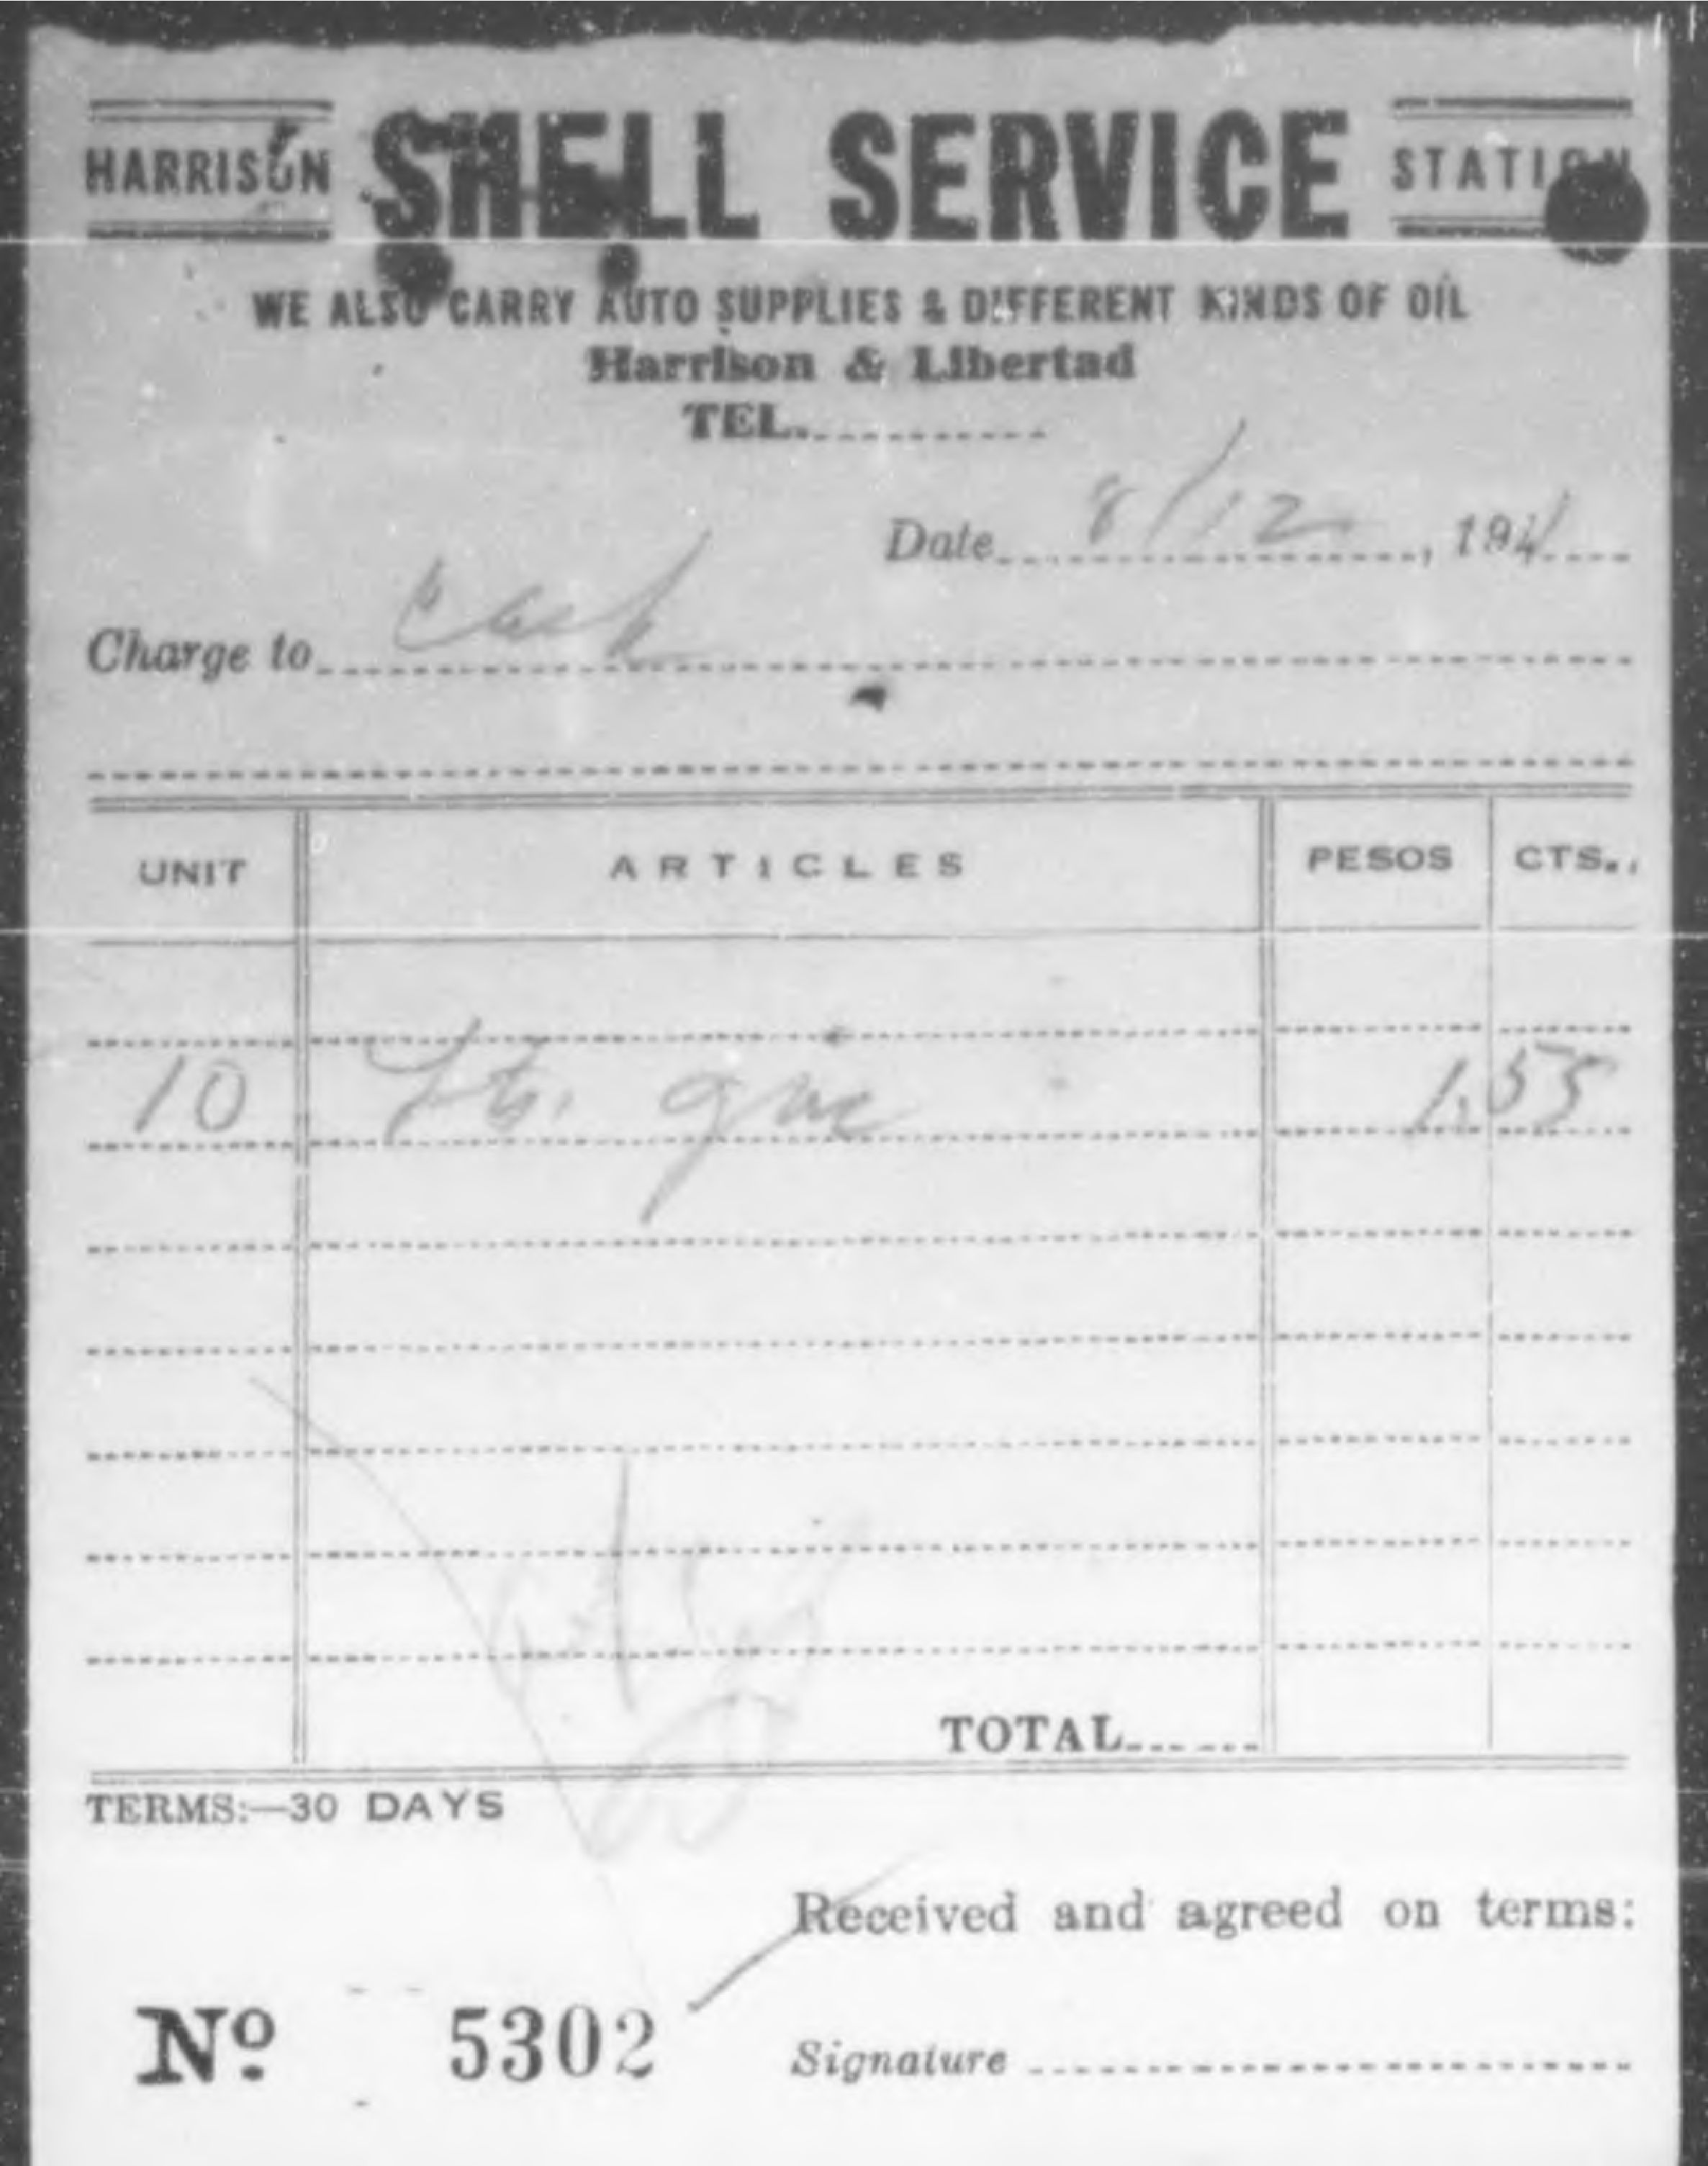 HARRISON SHELL SERVICE STATION
WE ALSO CARRY AUTO SUPPLIES & DIFFERENT KINDS OF OIL
Harrison & Libertad
TEL.
Date 8/12, 1941
Charge to Cash
UNIT ARTICLES PESOS CTS.
10 Lts. 1.55
TOTAL
TERMS:—30 DAYS
Received and agreed on terms:
Nº 5302 Signature